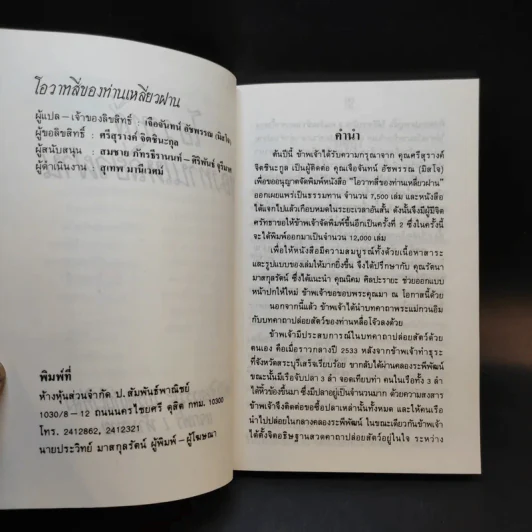 โอวาทสี่ของท่านเหลี่ยวฝาน
ผู้แปล - เจ้าของลิขสิทธิ์ : เจือจันทน์ อัชพรรณ (มิสโจ)
ผู้ขอลิขสิทธิ์ : ศรีสุรางค์ จิตชินะกุล
ผู้สนับสนุน : สมชาย ภัทรธิรานนท์ - ศิริพันธ์
ผู้ดำเนินงาน : สุเทพ มานีเวศม์
พิมพ์ที่
ห้างหุ้นส่วนจำกัด ป.สัมพันธ์พาณิชย์
1030/8 - 12 ถนนนครไชยศรี ดุสิต กทม. 10300
โทร. 2412862, 2412321
นายประวิทย์ มาสกุลรัตน์ ผู้พิมพ์ - ผู้โฆษณา
คำนำ
ต้นปีนี้ ข้าพเจ้าได้รับความกรุณาจาก คุณศรีสุรางค์
จิตชินะกุล เป็นผู้ติดต่อ คุณเจือจันทน์ อัชพรรณ (มิสโจ)
เพื่อขออนุญาตจัดพิมพ์หนังสือ "โอวาทสี่ของท่านเหลี่ยวฝาน"
ออกเผยแพร่เป็นธรรมทาน จำนวน 7,500 เล่ม และหนังสือ
ได้แจกไปแล้วเกือบหมดในระยะเวลาอันสั้น ดังนั้นจึงมีผู้มีจิต
ศรัทธาขอให้ข้าพเจ้าจัดพิมพ์ขึ้นอีกเป็นครั้งที่ 2 ซึ่งในครั้งนี้
จะได้พิมพ์ออกมาเป็นจำนวน 12,000 เล่ม
เพื่อให้หนังสือมีความสมบูรณ์ทั้งด้วยเนื้อหาสาระ
และรูปแบบของเล่มให้มากยิ่งขึ้น จึงได้ปรึกษากับ คุณรัตนา
มาสกุลรัตน์ ซึ่งได้แนะนำ คุณนิคม ศิลปะรายะ ช่วยออกแบบ
หน้าปกให้ใหม่ ข้าพเจ้าขอขอบพระคุณมา ณ โอกาสนี้ด้วย
นอกจากนี้แล้ว ข้าพเจ้าได้นำบทคาถาพระแม่กวนอิม
กับบทคาถาปล่อยสัตว์ของท่านหลือโจ้วลงด้วย
ข้าพเจ้ามีประสบการณ์ในบทคาถาปล่อยสัตว์ด้วย
ตนเอง คือเมื่อราวกลางปี 2533 หลังจากข้าพเจ้าทำธุระ
ที่จังหวัดสระบุรีเสร็จเรียบร้อย ขากลับได้ผ่านคลองระพีพัฒน์
ขณะนั้นมีเรือจับปลา 3 ลำ จอดเทียบท่า คนในเรือทั้ง 3 ลำ
ได้หิ้วข้องขึ้นมา ซึ่งมีปลาอยู่เป็นจำนวนมาก ด้วยความสงสาร
ข้าพเจ้าจึงติดต่อขอซื้อปลาเหล่านั้นทั้งหมด และให้คนเรือ
นำไปปล่อยในกลางคลองระพีพัฒน์ ในขณะเดียวกันข้าพเจ้า
ได้ตั้งจิตอธิษฐานสวดคาถาปล่อยสัตว์อยู่ในใจ ระหว่าง